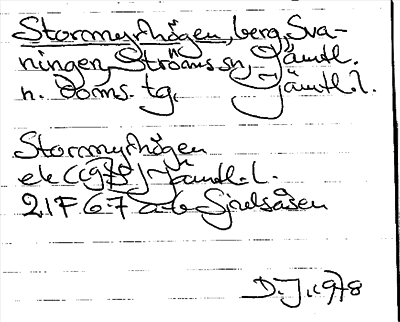 Stormyrhögen, berg, Sva-
ningen, Ströms sn, Jämtl.
n. doms. tg. Jämtl. l.
Stormyrhögen
ek (1978) Jämtl. l.
21F 6-7 a-b Sjulsåsen
D. J. 1978